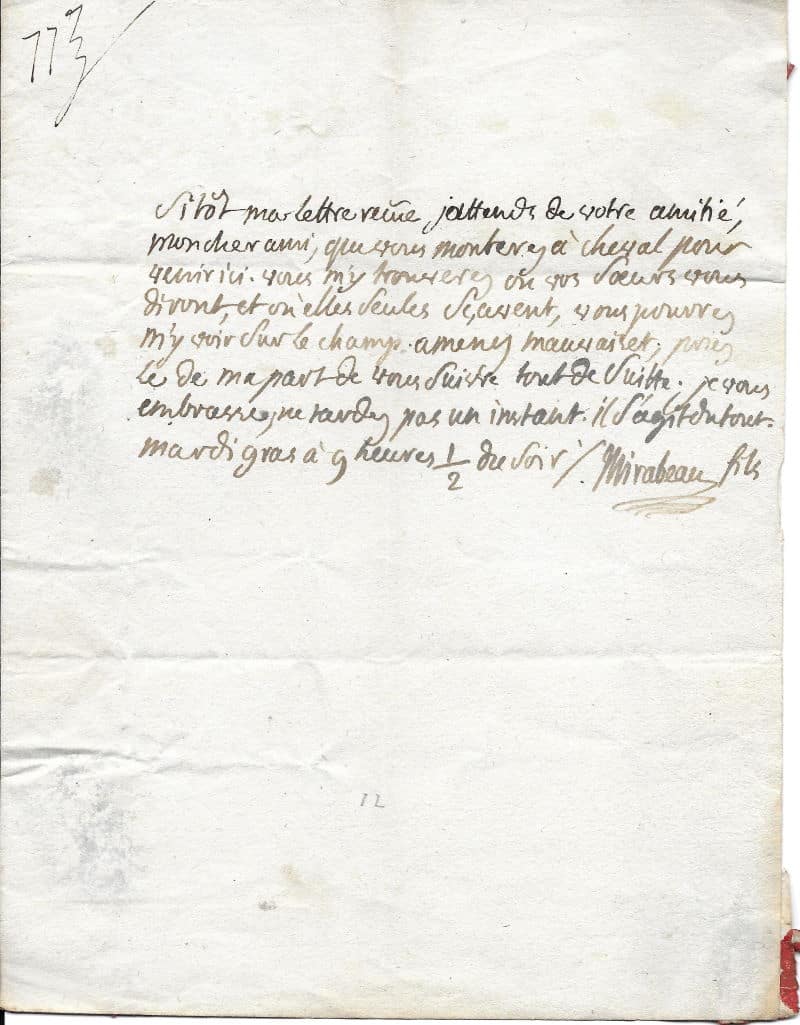 Sitôt ma lettre reçüe, j'attends de votre amitié,
mon cher ami, que vous monterez à cheval pour
venir ici. vous m'y trouverez où vos sœurs vous
diront, et où elles seules sçavent, vous pourrez
m'y voir sur le champ. amenez mauvaiset; priez
le de ma part de vous suivre tout de suitte. je vous
embrasse, ne tardez pas un instant. il s'agit du tout.
mardi gras à 9 heures 1/2 du soir /. Mirabeau fils
12